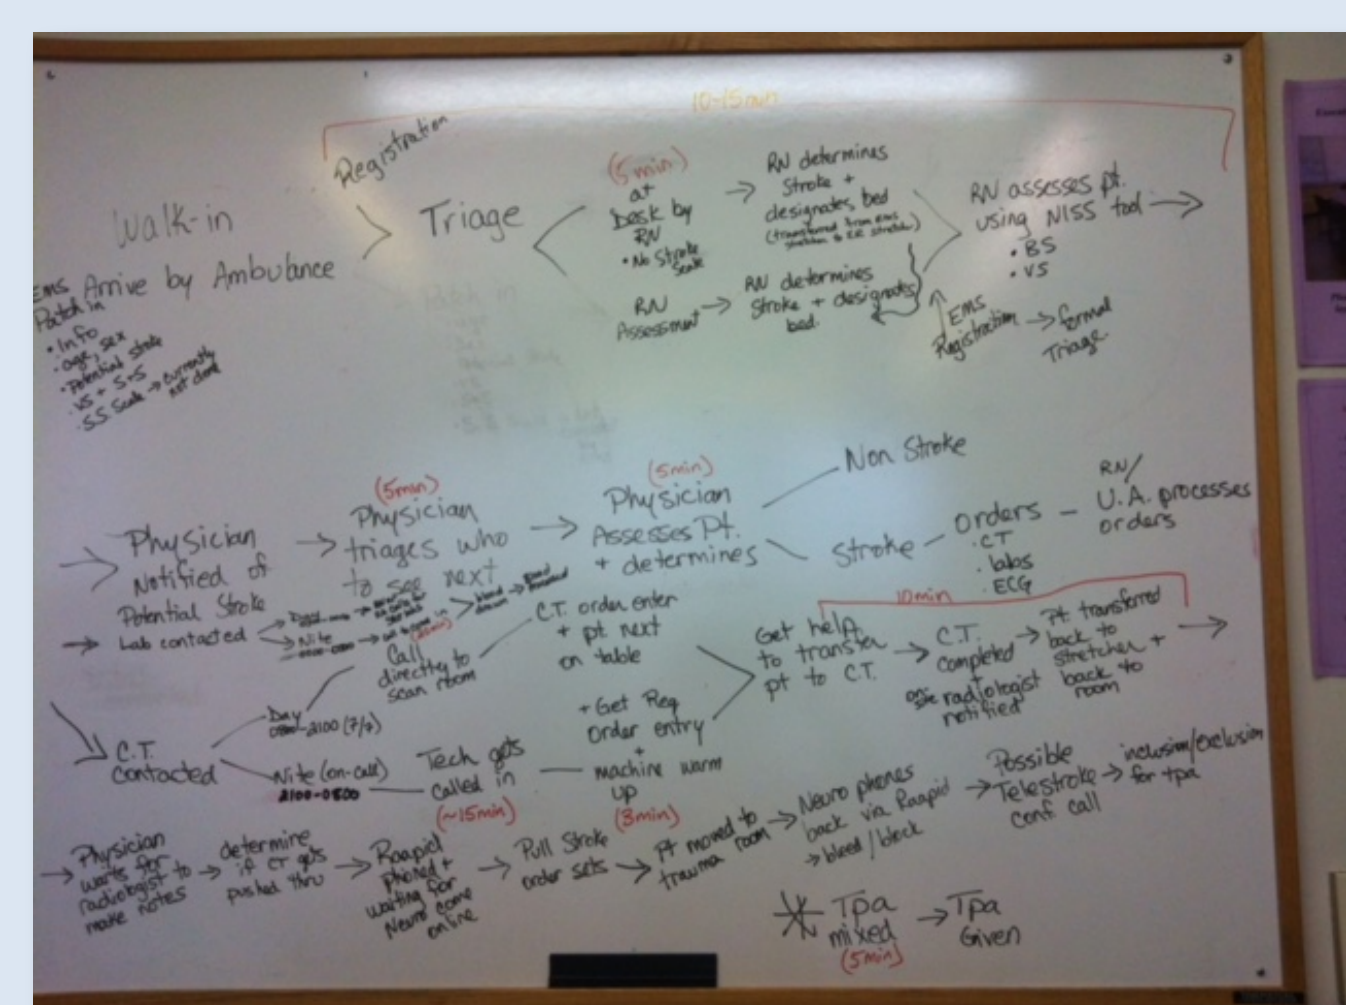 10-15min
Registration
Walk-in
Arrive by Ambulance
EMS
Patch in
• Info
• age, sex
• Potential stroke
• VS + S+S
• S.S. Scale → currently
not done
Triage
(5 min)
at
Desk by
RN
• No Stroke
Scale
RN determines
Stroke +
designates bed
(transferred from EMS
stretcher to ER stretcher)
RN
Assessment
RN determines
Stroke + designates
bed.
RN assesses pt.
using NISS tool
• BS
• VS
EMS
Registration → formal
Triage
Physician
Notified of
Potential Stroke
→ Lab contacted
Day
Nite
(5min)
Physician
triages who
to see next
(5min)
Physician
Assesses Pt.
+ determines
Non Stroke
Stroke
orders
• CT
• labs
• ECG
RN/
U.A. processes
orders
C.T.
Contacted
Day
0800-2100 (7/7)
Call
directly to
scan room
C.T. order enter
+ pt next
on table
Nite (on-call)
2100-0800
Tech gets
called in
(~15min)
+ Get Req
order entry
+
machine warm
up
(8min)
10min
Get help
to transfer
pt to C.T.
→ C.T.
completed
+
on-site radiologist
notified
→ Pt. transferred
back to
stretcher +
back to
room
→ Physician
waits for
radiologist to
make notes
→ determine
if CT gets
pushed thru
→ Raapid
phoned +
waiting for
Neuro come
online
→ Pull Stroke
order sets
→ Pt moved to
trauma room
→ Neuro phones
back via Raapid
→ bleed/block
→ Possible
Telestroke
conf. call
→ inclusion/exclusion
for tpa
Tpa
mixed
(5min)
→ Tpa
Given